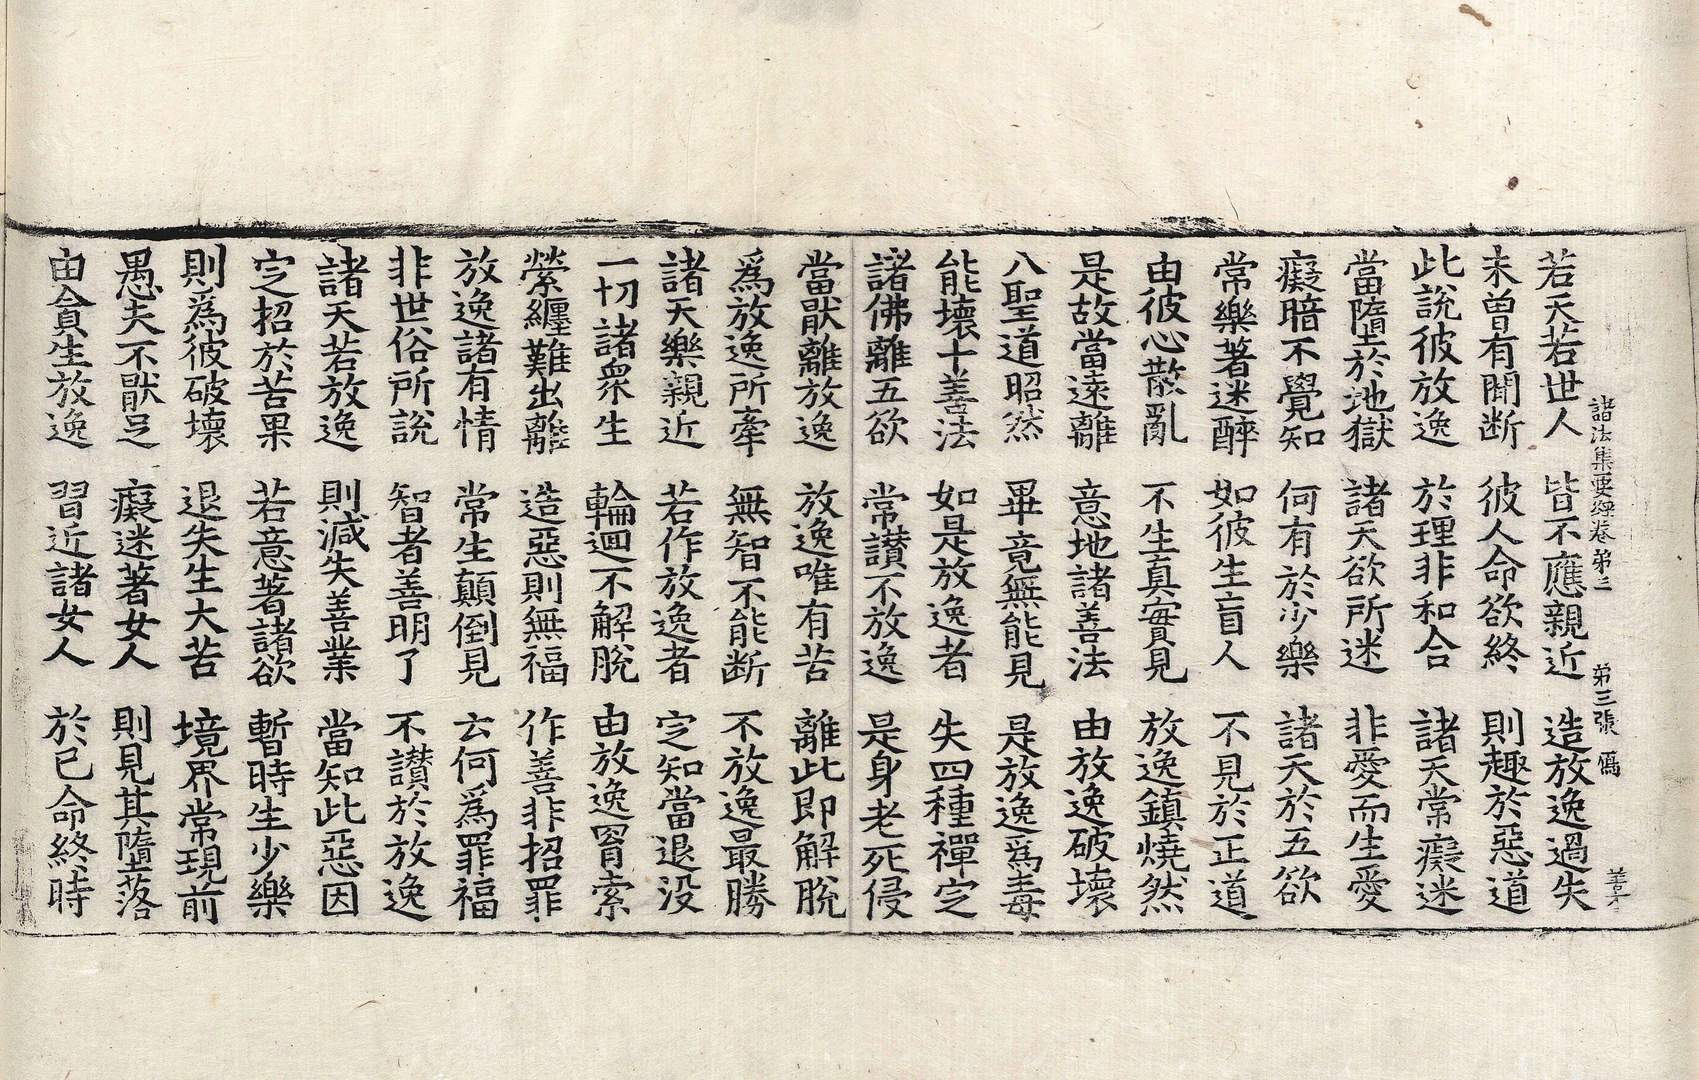 諸法集要經卷第二 第三張 㒇
若天若世人 皆不應親近 造放逸過失
未曾有聞斷 彼人命欲終 則趣於惡道
此說彼放逸 於理非和合 諸天常癡迷
當墮於地獄 諸天欲所迷 非愛而生愛
癡暗不覺知 何有於少樂 諸天於五欲
常樂著迷醉 如彼生盲人 不見於正道
由彼心散亂 不生真實見 放逸鎮燒然
是故當遠離 意地諸善法 由放逸破壞
八聖道昭然 畢竟無能見 是放逸為毒
能壞十善法 如是放逸者 失四種禪定
諸佛離五欲 常讚不放逸 是身老死侵
當猒離放逸 放逸唯有苦 離此即解脫
為放逸所牽 無智不能斷 不放逸最勝
諸天樂親近 若作放逸者 定知當退没
一切諸眾生 輪迴不解脫 由放逸罥索
縈纏難出離 造惡則無福 作善非招罪
放逸諸有情 常生顛倒見 云何為罪福
非世俗所說 智者善明了 不讚於放逸
諸天若放逸 則減失善業 當知此惡因
定招於苦果 若意著諸欲 暫時生少樂
則為彼破壞 退失生大苦 境界常現前
愚夫不猒足 癡迷著女人 則見其墮落
由貪生放逸 習近諸女人 於已命終時